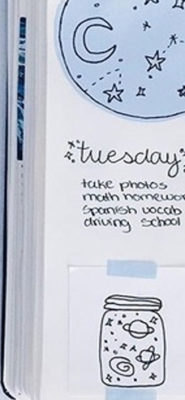 tuesday
take photos
math homewor
spanish vocab
driving school